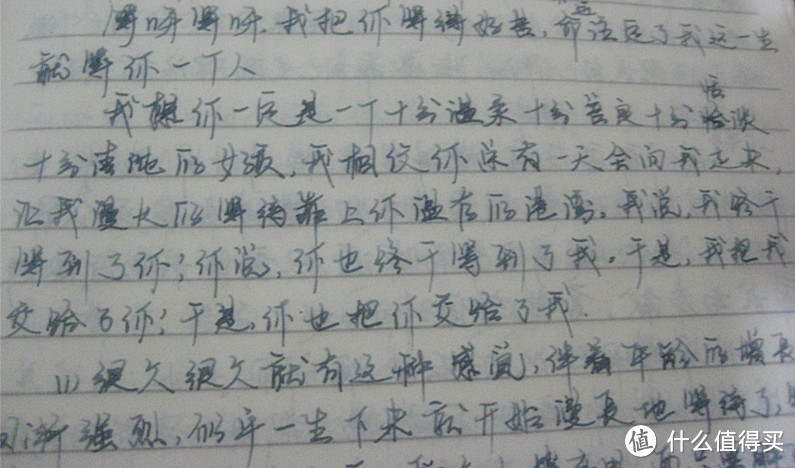 等呀等呀,我把你等得好苦,命运注定了我这一生
就等你一个人
我想你一定是一个十分温柔十分善良十分恬淡
十分清纯的女孩,我相信你总有一天会向我走来,
让我漫长的等待靠上你温存的港湾。我说,我终于
等到了你;你说,你也终于等到了我。于是,我把我
交给了你;于是,你也把你交给了我.
(1)很久很久就有这种感觉,伴着年龄的增长
渐强烈,似乎一生下来就开始漫长地等待了,
值 什么值得买